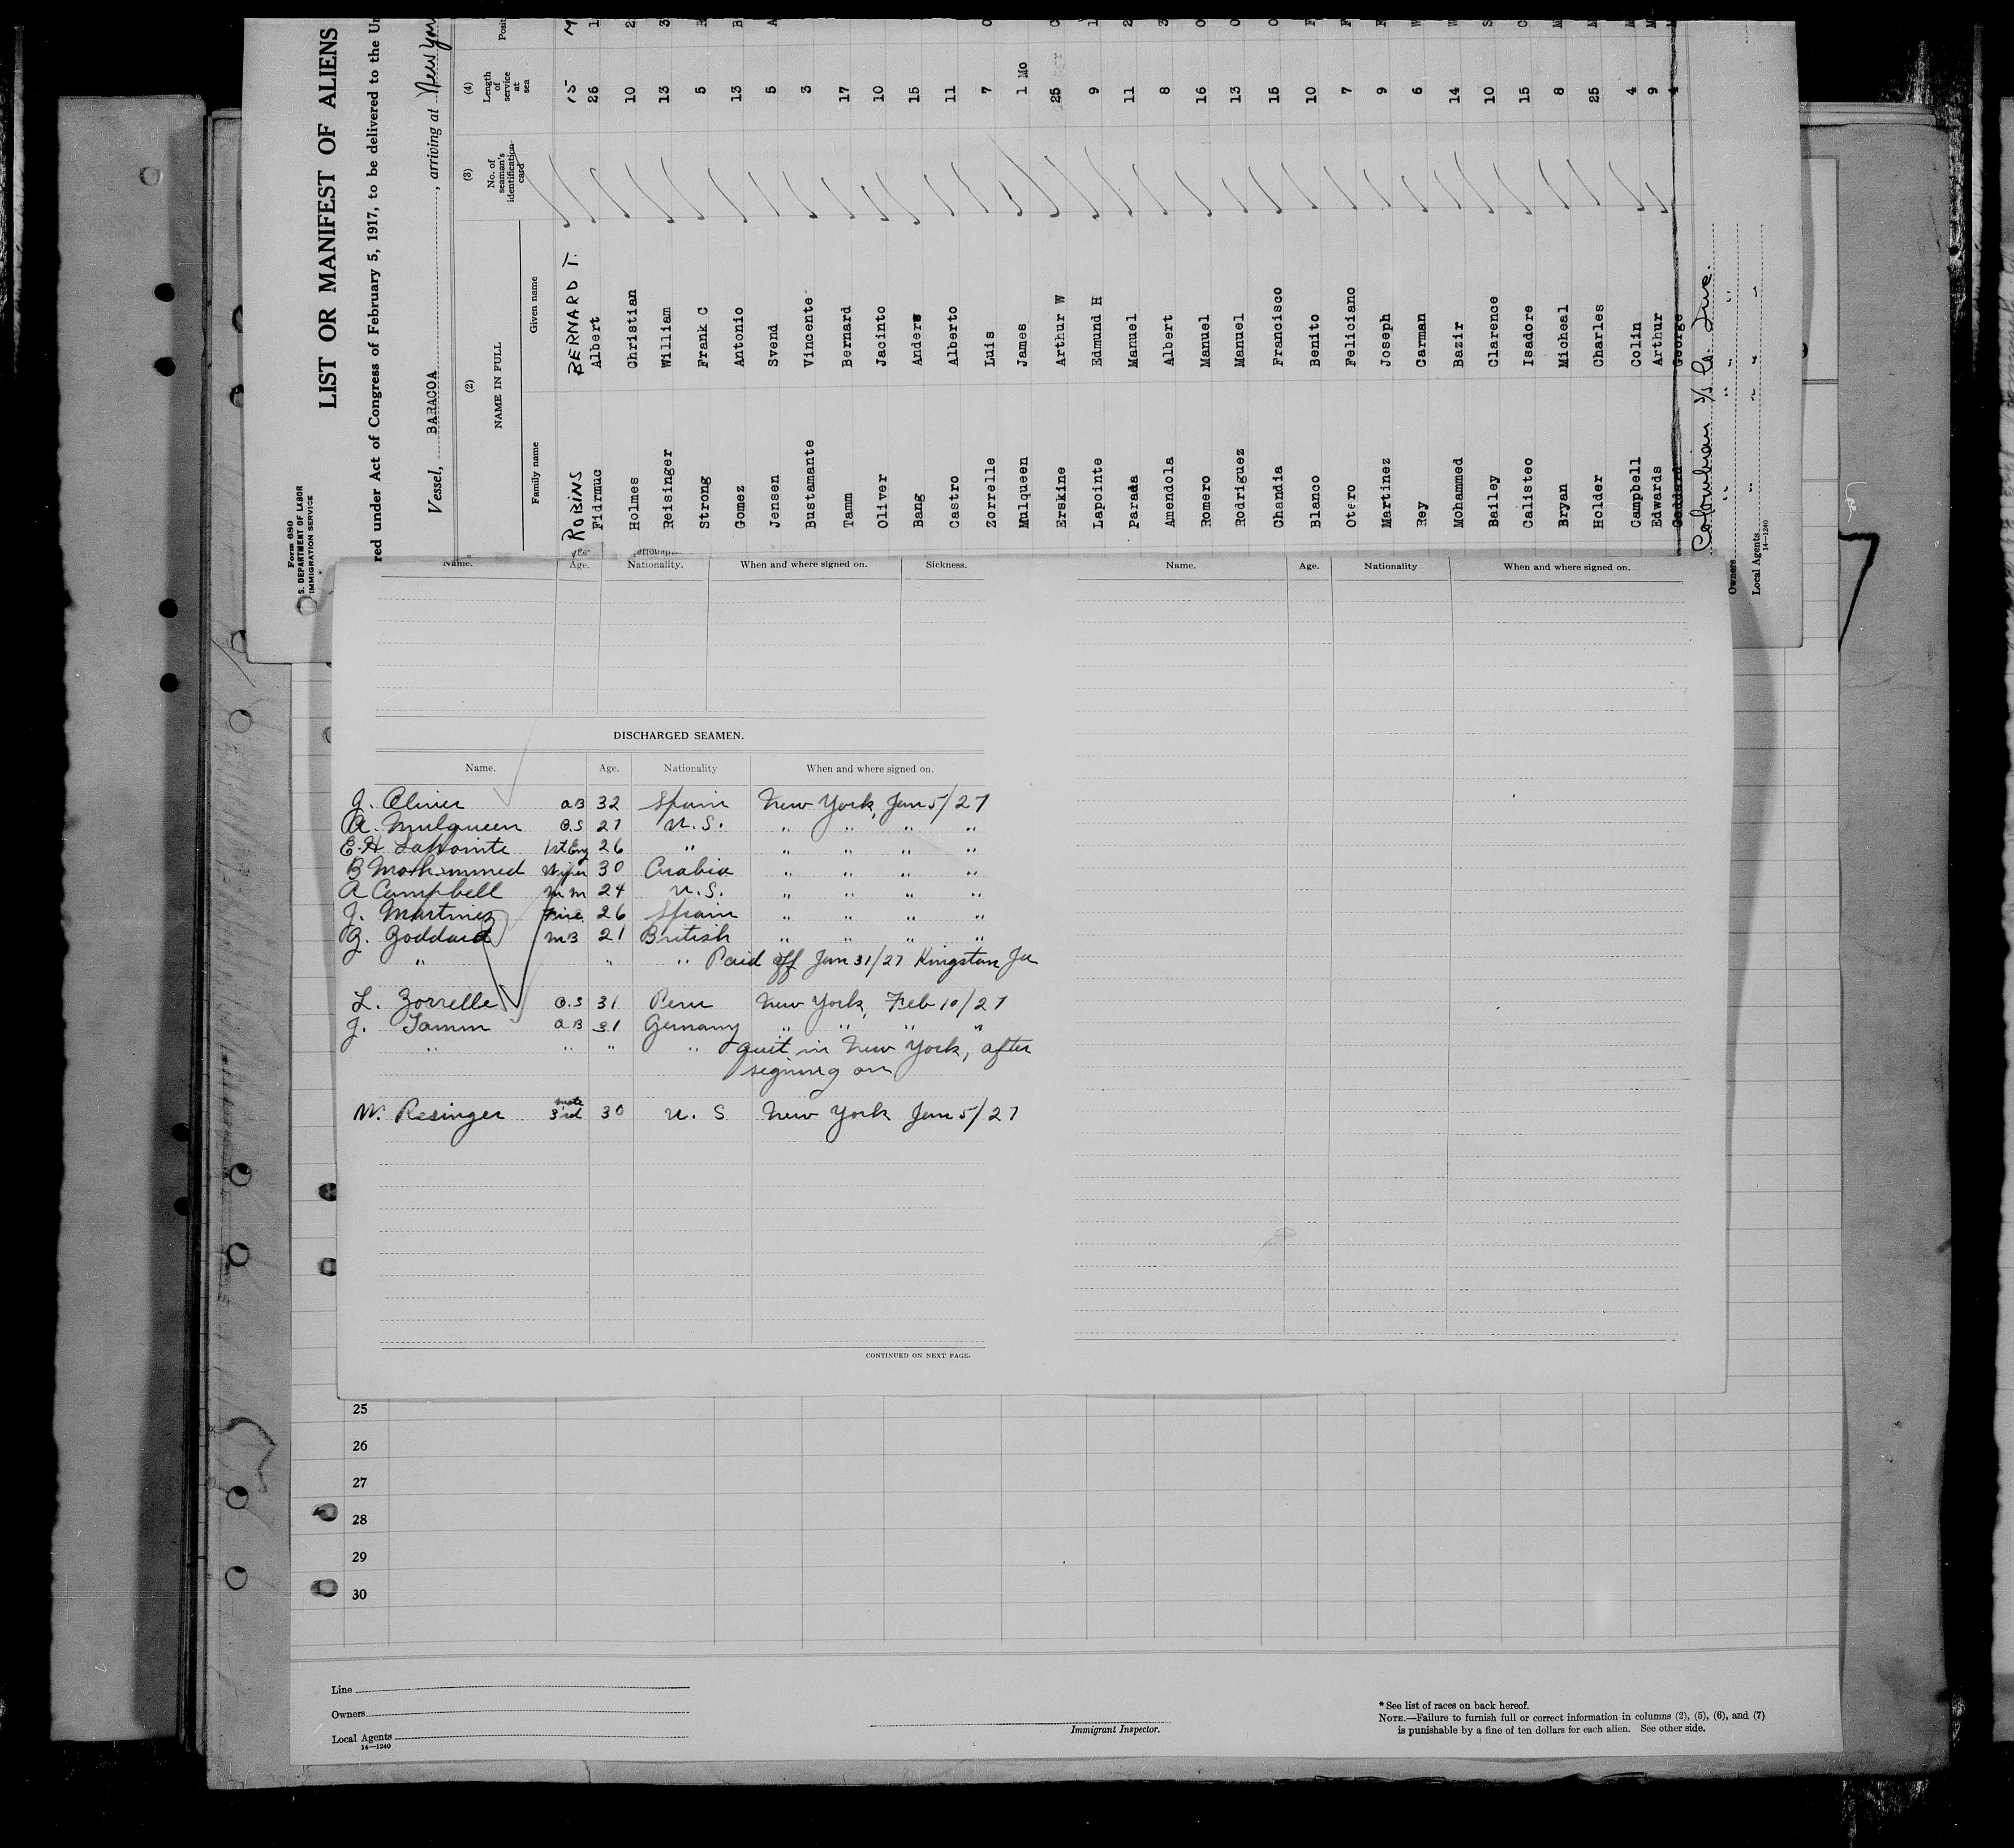 Form 680
S. DEPARTMENT OF LABOR
IMMIGRATION SERVICE
LIST OR MANIFEST OF ALIENS
red under Act of Congress of February 5, 1917, to be delivered to the Un
Vessel, BARACOA, arriving at New Yor
(2) (3) (4)
NAME IN FULL No. of seaman's identification card Length of service at sea Posit
Family name Given name
ROBINS BERNARD T. 15 M
Fidrmuc Albert 26 1
Holmes Christian 10 2
Reisinger William 13 3
Strong Frank C 5
Gomez Antonio 13 B
Jensen Svend 5 A
Bustamante Vincente 3
Tamm Bernard 17
Oliver Jacinto 10
Bang Anders 15
Castro Alberto 11
Zorrelle Luis 7 O
Mulqueen James 1 Mo
Erskine Arthur W 25 C
Lapointe Edmund H 9 1
Parada Manuel 11 2
Amendola Albert 8 3
Romero Manuel 16 O
Rodriguez Manuel 13 O
Chandia Francisco 15 O
Blanco Benito 10 F
Otero Feliciano 7 F
Martinez Joseph 9 F
Rey Carman 6 W
Mohammed Bazir 14 W
Bailey Clarence 10 S
Calisteo Isadore 15 C
Bryan Micheal 8 M
Holder Charles 25 M
Campbell Colin 4 M
Edwards Arthur 9 M
Goddard George 4 M
Colombian S/S Co. Inc.
Owners " " " "
Local Agents " " "
14—1240
Name. Age. Nationality. When and where signed on. Sickness.
Name. Age. Nationality When and where signed on.
DISCHARGED SEAMEN.
Name. Age. Nationality When and where signed on.
J. Oliver AB 32 Spain New York, Jan 5/27
A. Mulqueen O.S 27 U.S. " " " "
E.H LaPointe 1st Eng 26 " " " " "
B Mohammed Wiper 30 Arabia " " " "
A Campbell m m 24 U.S. " " " "
J. Martinez Fire 26 Spain " " " "
G. Goddard MB 21 British " " " "
" " " Paid off Jan 31/27 Kingston Ja
L. Zorrelle O.S 31 Peru New York, Feb 10/27
J. Tamm AB 31 Germany " " " "
" " " " quit in New York, after
signing on
W. Resinger 3rd mate 30 U. S New York Jan 5/27
CONTINUED ON NEXT PAGE.
25
26
27
28
29
30
Line
Owners
Local Agents
14—1240
Immigrant Inspector.
* See list of races on back hereof.
NOTE.—Failure to furnish full or correct information in columns (2), (5), (6), and (7)
is punishable by a fine of ten dollars for each alien. See other side.